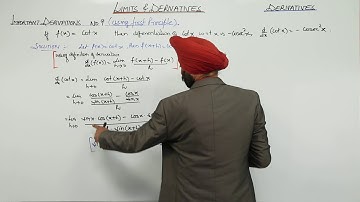 LIMITS & DERIVATIVES
DERIVATIVES
IMPORTANT DERIVATIONS NO 9 (Using first Principle)
If f(x) = cot x, then differentiation of cot x w.r.t x is -cosec²x, d/dx (cot x) = - cosec²x.
Solution - Let f(x) = cot x, then f(x+h) =
Using definition of derivative
d/dx (f(x)) = lim h→0 f(x+h) - f(x) / h
d/dx (cot x) = lim h→0 cot(x+h) - cot x / h
= lim h→0 cos(x+h) / sin(x+h) - cos x / sin x / h
= lim h→0 sin x cos(x+h) - cos x
sin(x+h)